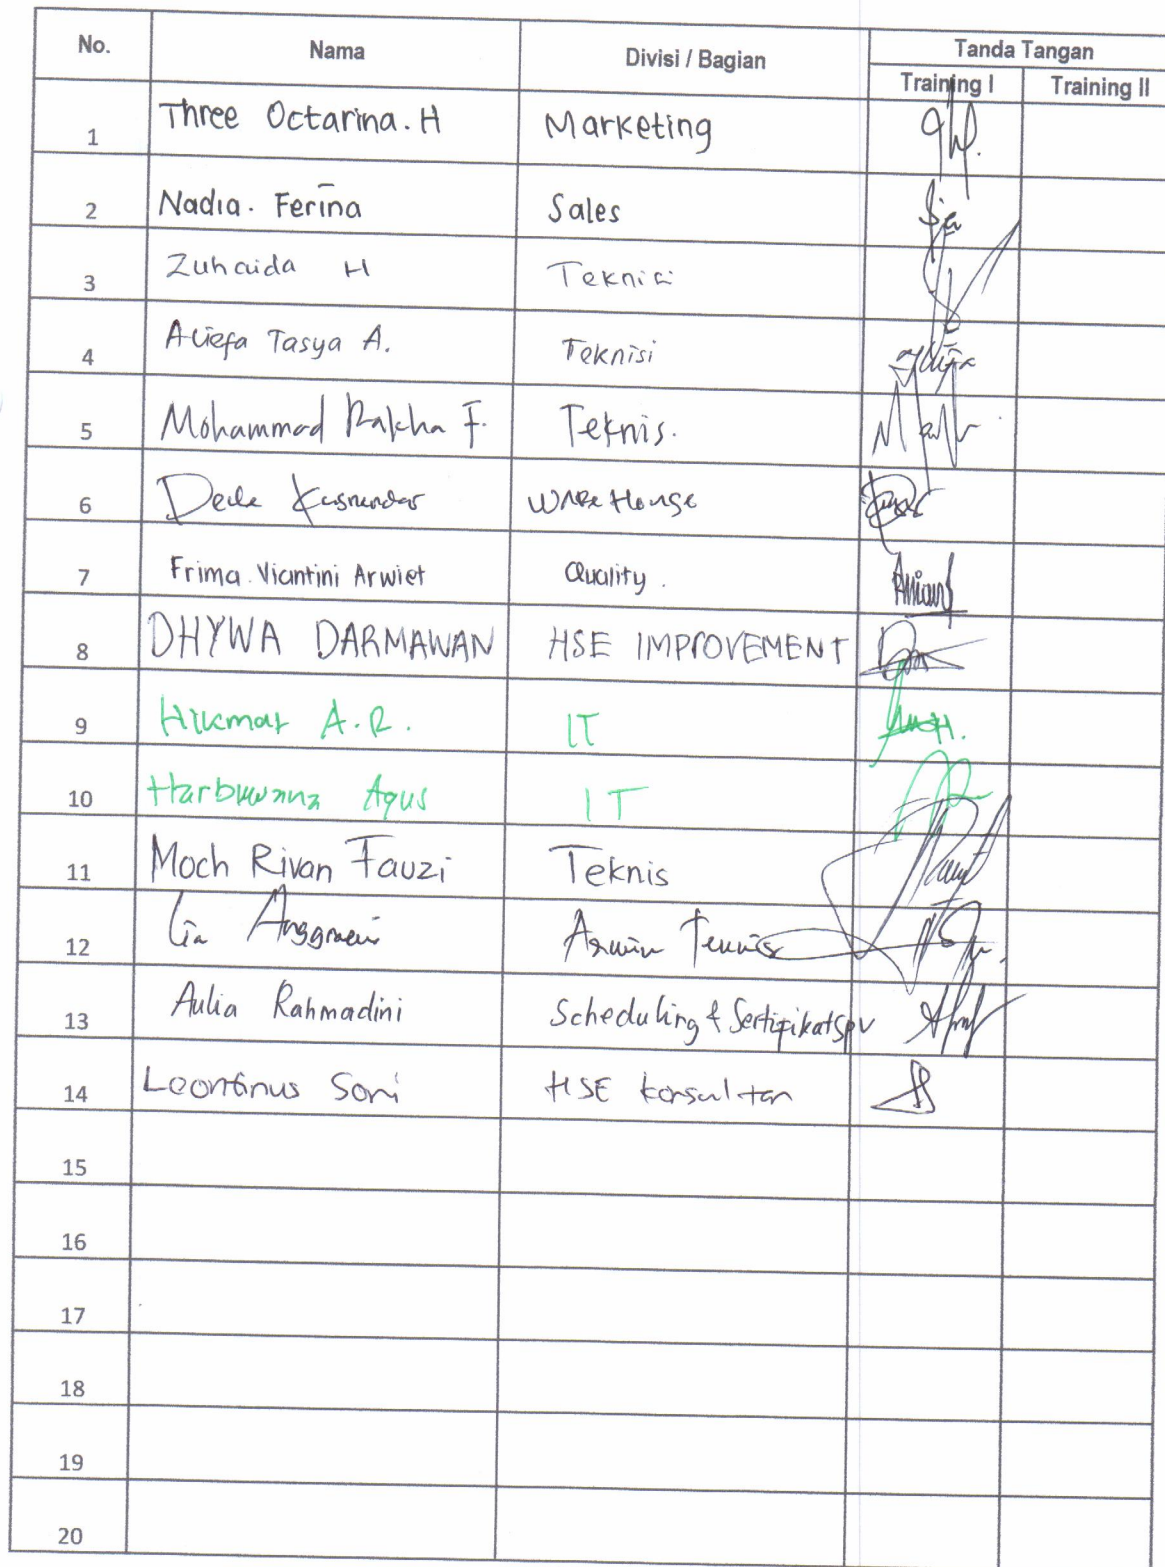 No. Nama Divisi / Bagian Tanda Tangan
Training I Training II
1 Three Octarina. H Marketing
2 Nadia. Ferina Sales
3 Zuhaida H Teknisi
4 Aliefa Tasya A. Teknisi
5 Mohammad Rakha F. Teknis.
6 Dede Kusnandar WareHouse
7 Frima Viantini Arwiet Quality.
8 DHYWA DARMAWAN HSE IMPROVEMENT
9 Hikmat A.R. IT
10 Harbuwana Agus IT
11 Moch Rivan Fauzi Teknis
12 Lia Anggraeni Admin Teknis
13 Aulia Rahmadini Scheduling & Sertifikat SPV
14 Leontinus Soni HSE konsultan
15
16
17
18
19
20